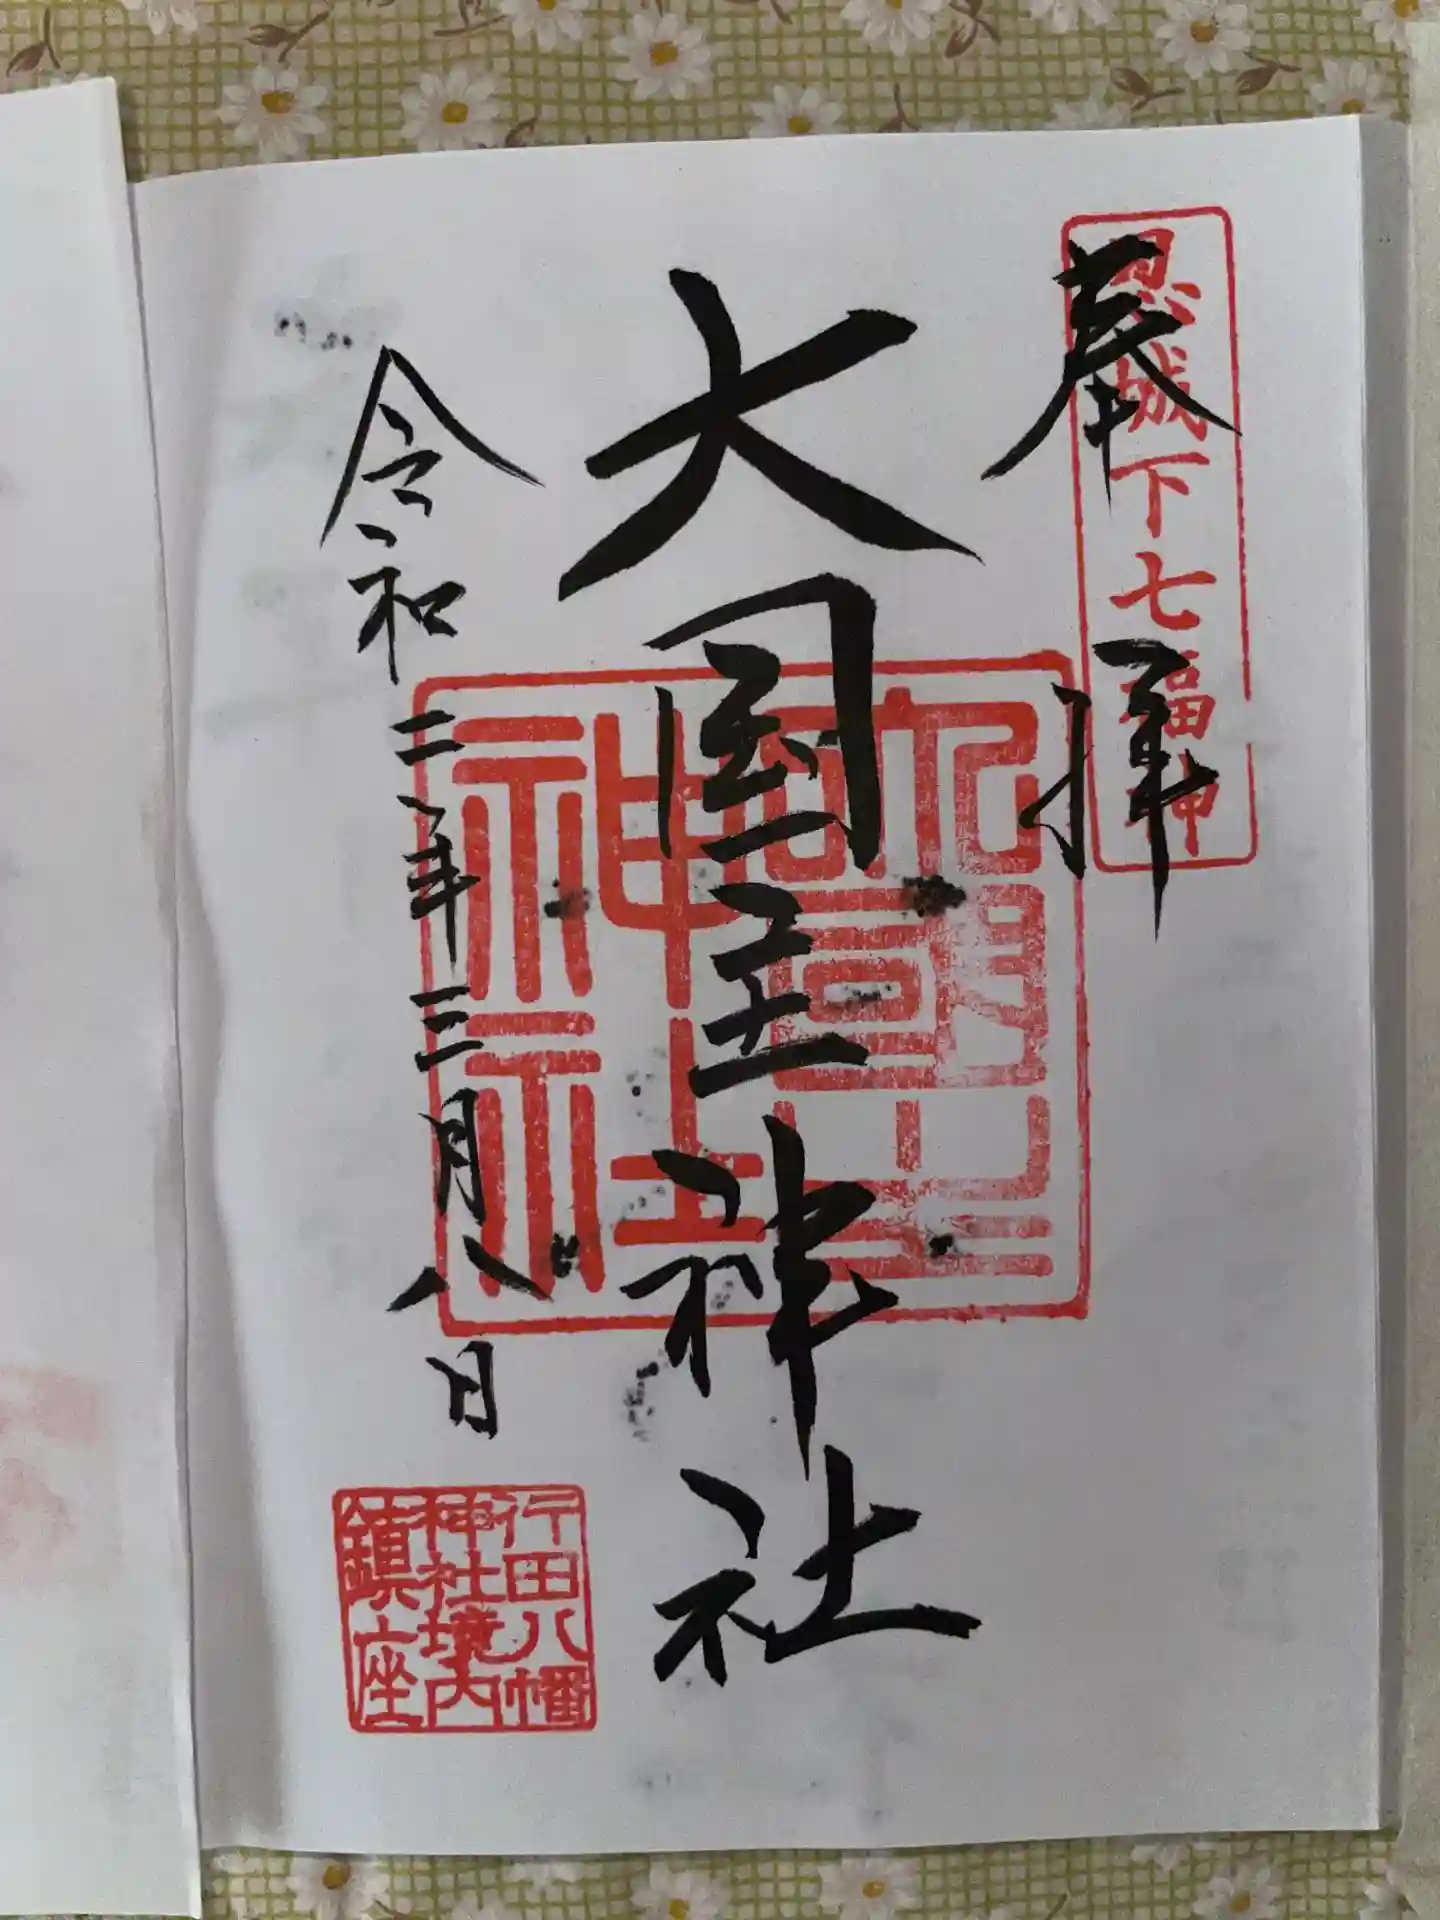 奉拝
忍城下七福神
大国主神社
大國主
神社
令和二年三月八日
行田八幡
神社境内
鎮座